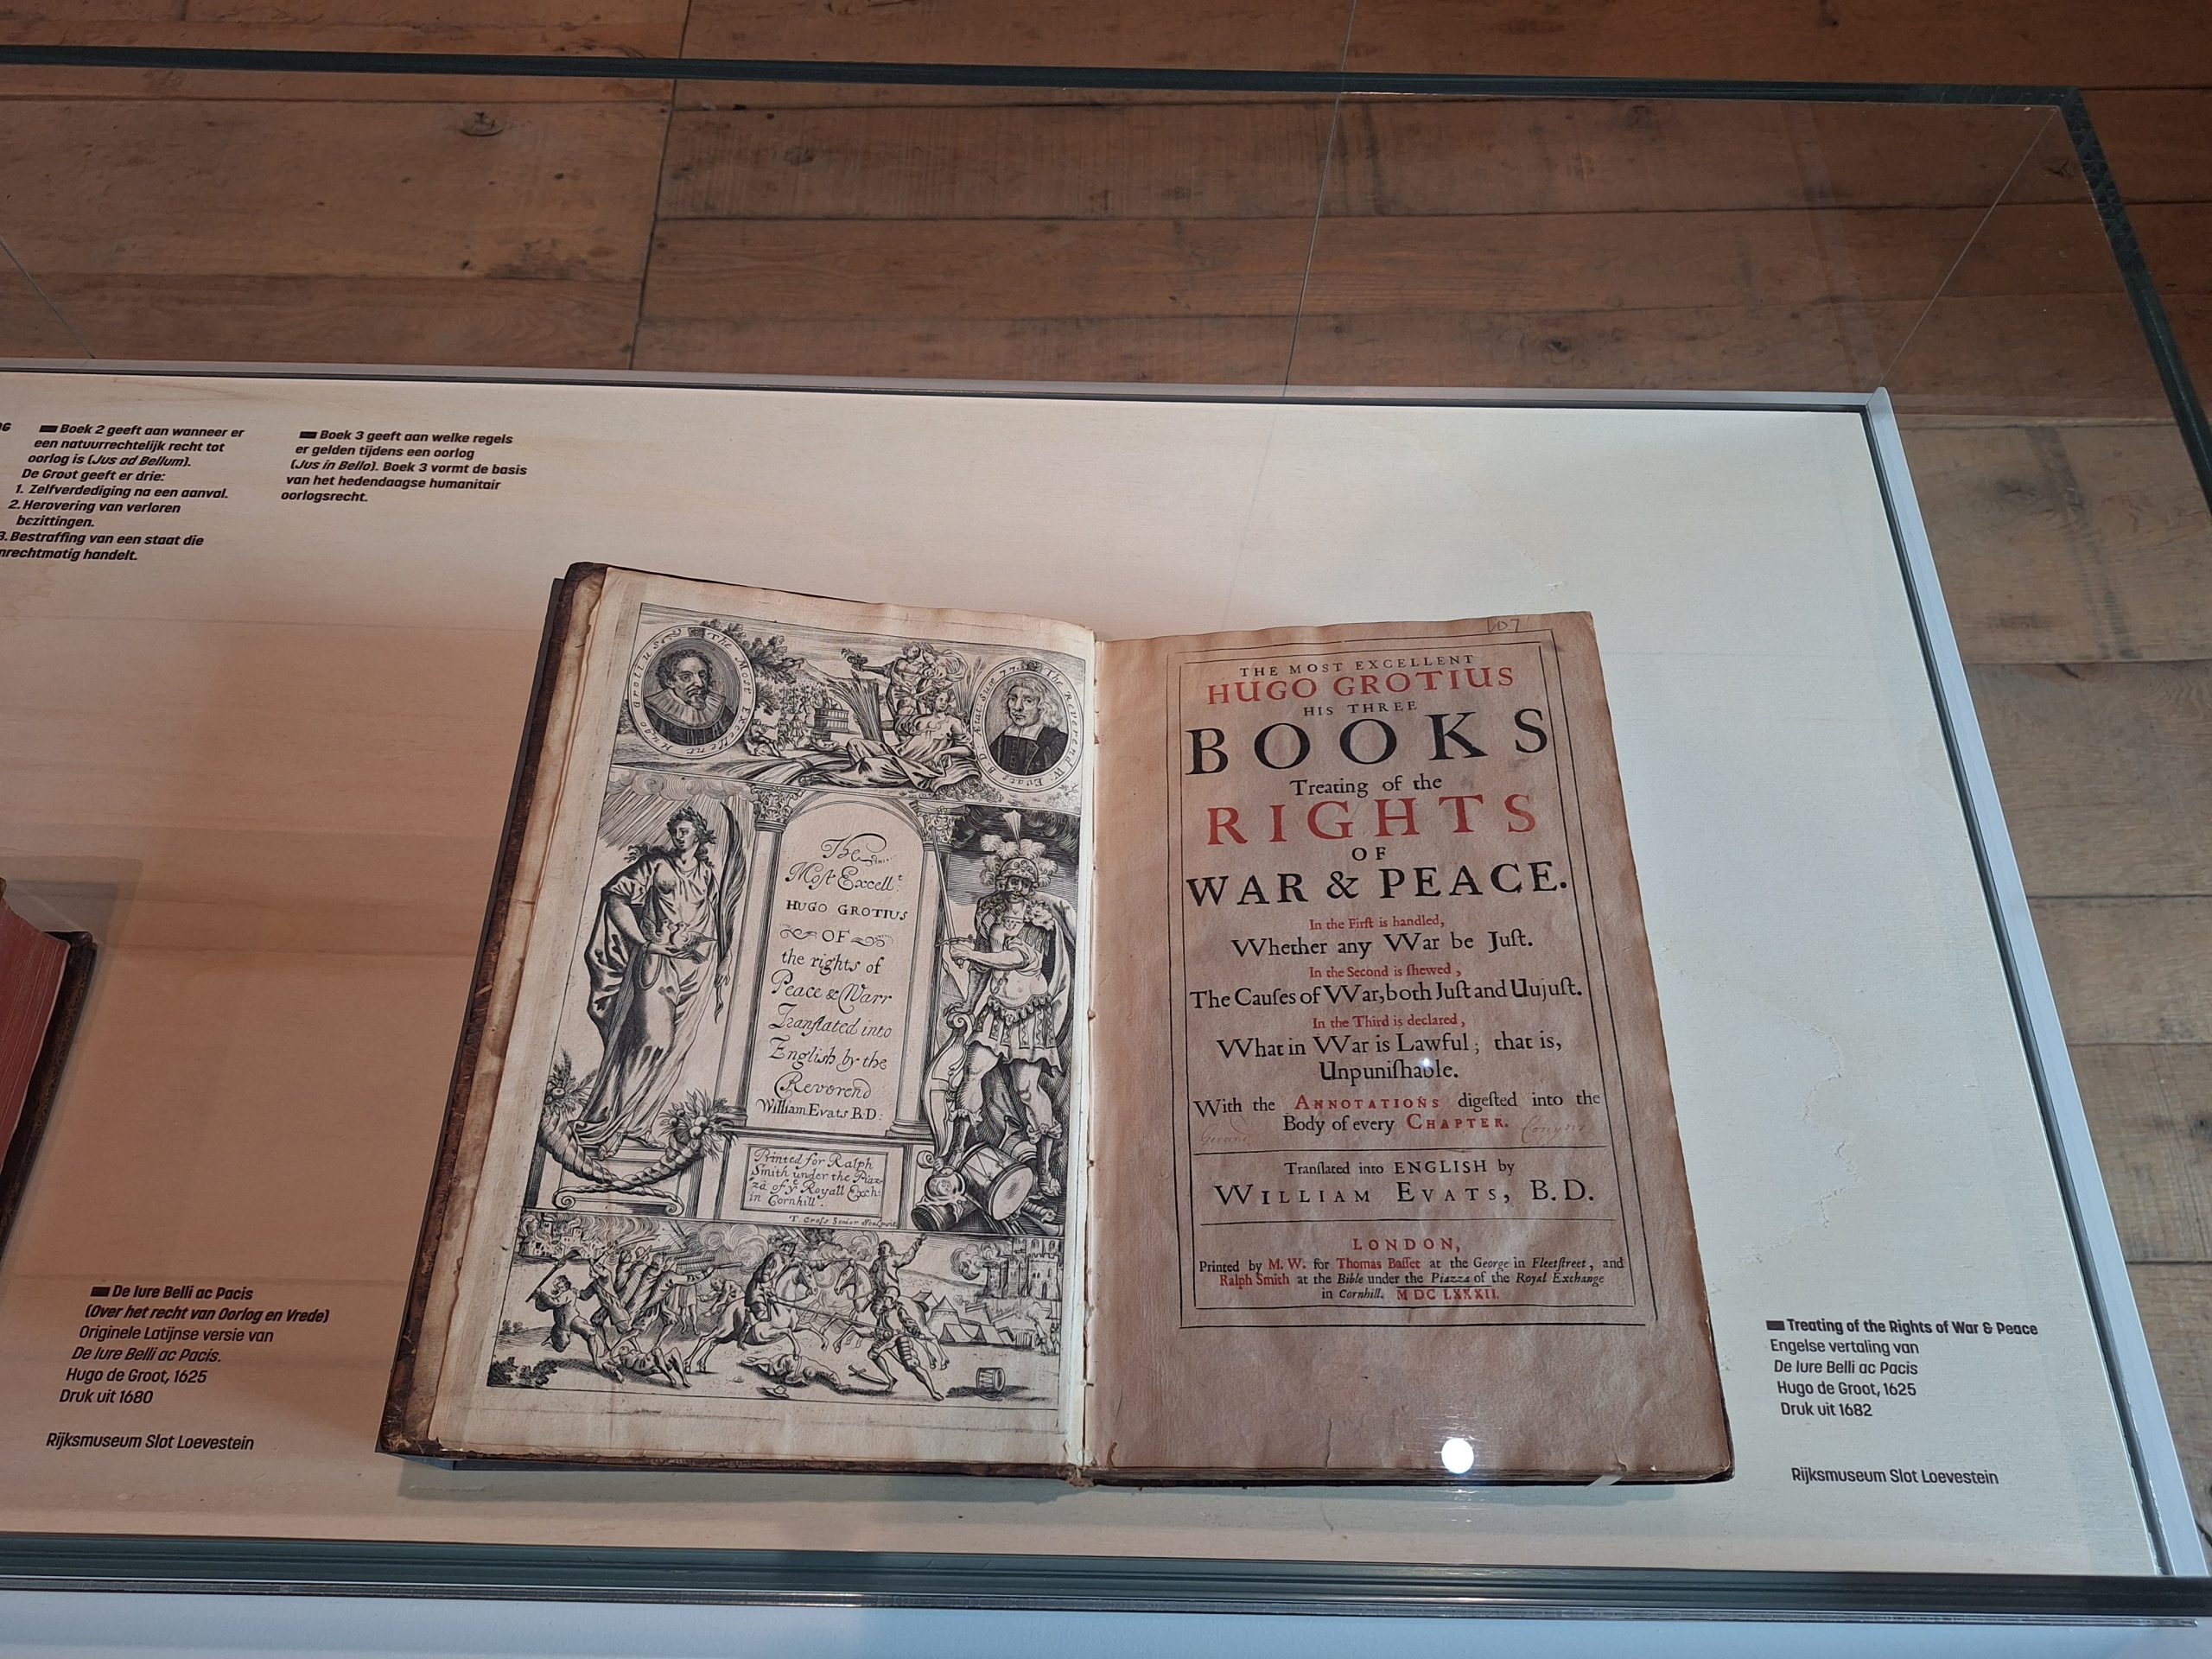 Boek 2 geeft aan wanneer er
een natuurrechtelijk recht tot
oorlog is (Jus ad Bellum).
De Groot geeft er drie:
1. Zelfverdediging na een aanval.
2. Herovering van verloren
bezittingen.
3. Bestraffing van een staat die
nrechtmatig handelt.
Boek 3 geeft aan welke regels
er gelden tijdens een oorlog
(Jus in Bello). Boek 3 vormt de basis
van het hedendaagse humanitair
oorlogsrecht.
The Most Excellent Hugo Grotius
The Reverend W. Evats B.D. Ætat: suæ 77
The
Most Excell.t
HUGO GROTIUS
OF
the rights of
Peace & Warr
Tranſlated into
Engliſh by the
Reverend
William Evats B.D:
Printed for Ralph
Smith under the Piaz-
za of ye Royall Exch:
in Cornhill.
T. Croſs Senior Sculpsit
107
THE MOST EXCELLENT
HUGO GROTIUS
HIS THREE
BOOKS
Treating of the
RIGHTS
OF
WAR & PEACE.
In the Firſt is handled,
Whether any War be Juſt.
In the Second is ſhewed,
The Cauſes of War, both Juſt and Uujuſt.
In the Third is declared,
What in War is Lawful; that is,
Unpuniſhable.
With the ANNOTATIONS digeſted into the
Body of every CHAPTER.
Tranſlated into ENGLISH by
WILLIAM EVATS, B.D.
LONDON,
Printed by M. W. for Thomas Baſſet at the George in Fleetſtreet, and
Ralph Smith at the Bible under the Piazza of the Royal Exchange
in Cornhill. M DC LXXXII.
De Iure Belli ac Pacis
(Over het recht van Oorlog en Vrede)
Originele Latijnse versie van
De Iure Belli ac Pacis.
Hugo de Groot, 1625
Druk uit 1680
Rijksmuseum Slot Loevestein
Treating of the Rights of War & Peace
Engelse vertaling van
De Iure Belli ac Pacis
Hugo de Groot, 1625
Druk uit 1682
Rijksmuseum Slot Loevestein